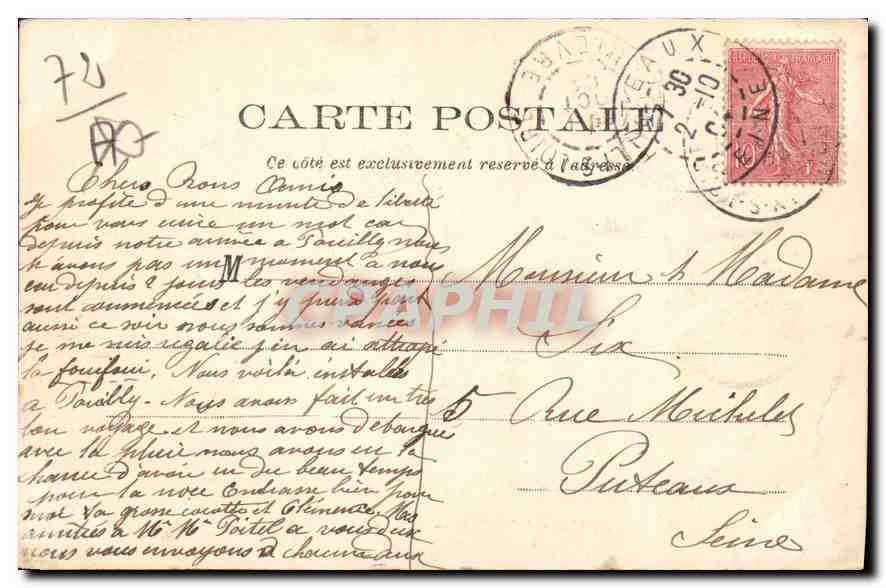 72
CARTE POSTALE
Ce côté est exclusivement reservé à l'adresse
Chers Bons Amis
Je profite d'une minute de liberté
pour vous ecrire un mot car
depuis notre arrivée a Pouilly nous
n'avons pas un moment a nous
car depuis 2 jours les vendanges
sont commencées et j'y prend part
aussi ce soir nous sommes vannées
je me suis regalée j'en ai attrapé
la Nous voilà installés
a Pouilly. Nous avons fait un tres
bon voyage et nous avons debarqués
avec la pluie nous avons eu la
chance d'avoir eu du beau temps
pour la noce Embrasse bien pour
moi la grosse cocotte et Clemence Mes
amitiés a Mr Me Poitel a vous deux
nous vous envoyons a chacun
M
Monsieur & Madame
Six
5 Rue Michelet
Puteaux
Seine
PUTEAUX
SEINE
7 30
2 -10
NIEVRE
CPAPHIL